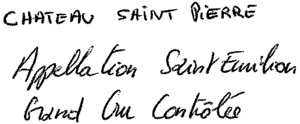 CHATEAU SAINT PIERRE
Appellation Saint Emilion
Grand Cru Contrôlée